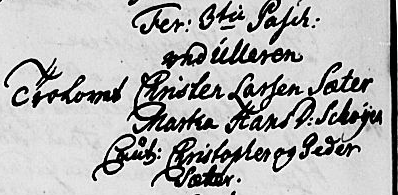 Fer: 3tie Pasch:
ynd Ulleren
Trolovet Christen Larsen Sæter
Martha Hans D: Schøyen
Caut: Christopher og Peder
Sætter.